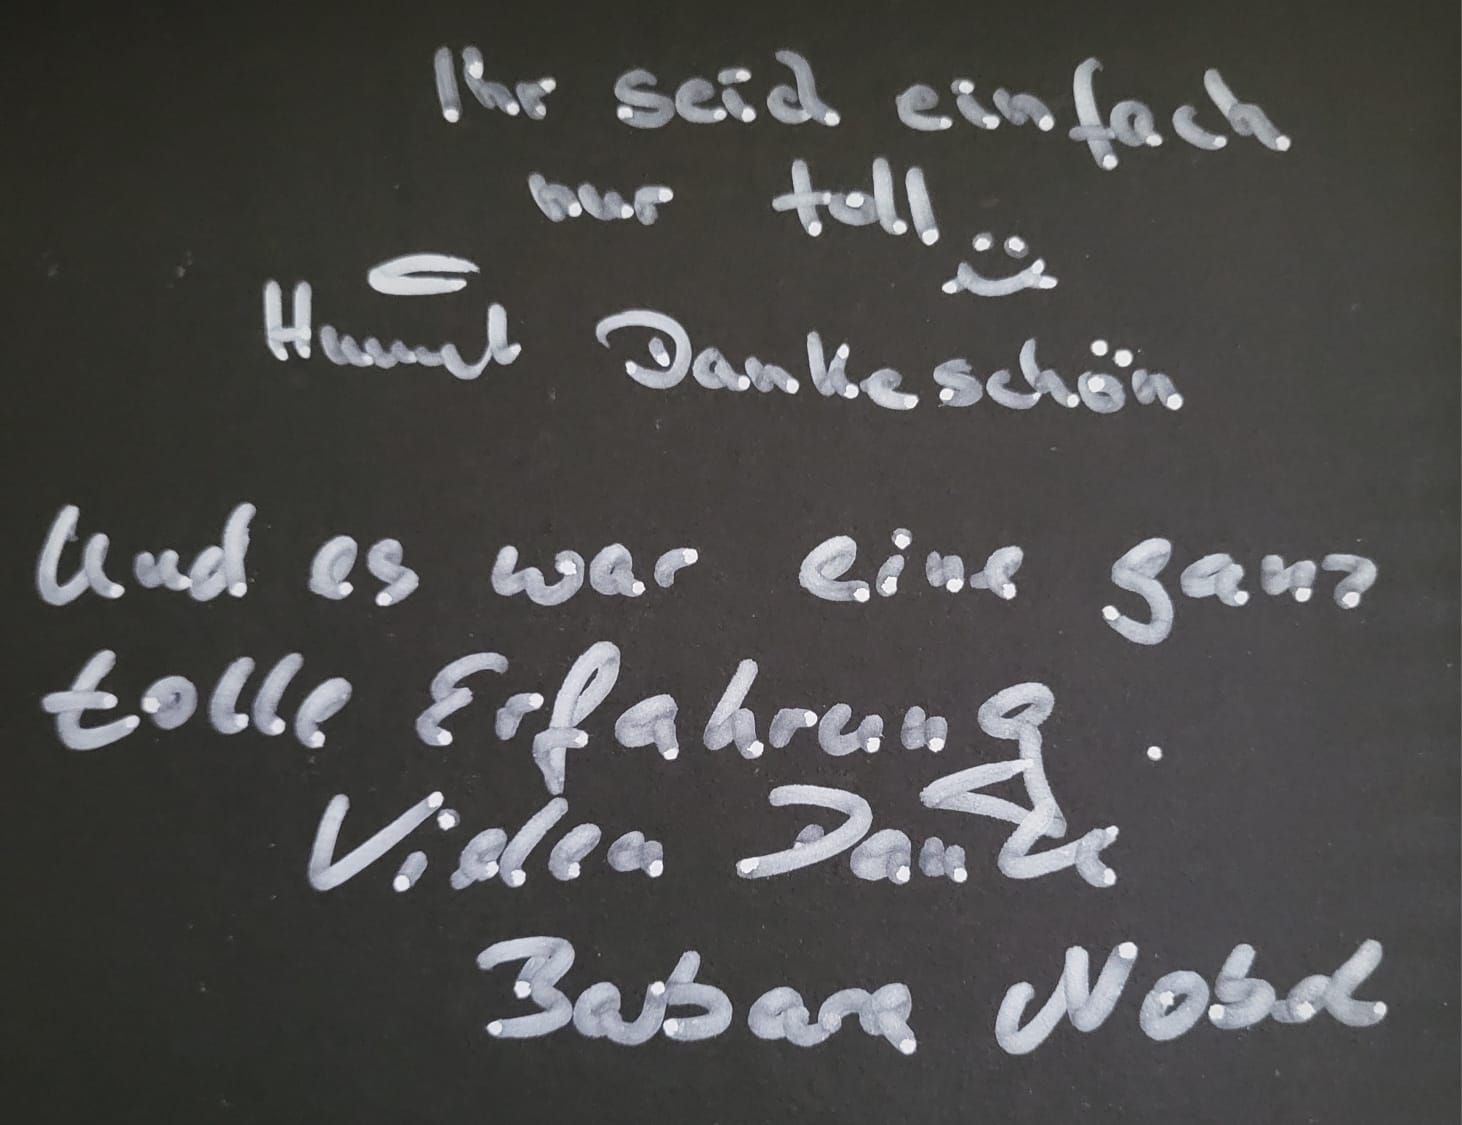 Ihr seid einfach
nur toll
Dankeschön
Und es war eine ganz
tolle Erfahrung.
Vielen Danke